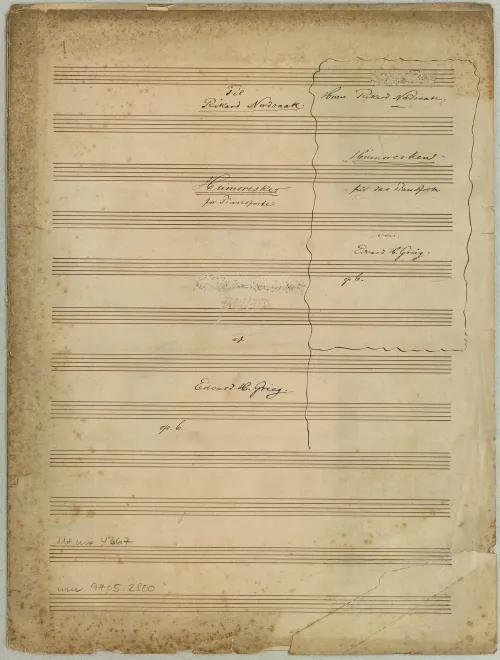 Til
Rikard Nordraak.
Humoresker
for Pianoforte
af
Edvard H. Grieg.
op. 6.
Herrn Rikard Nordraak.
Humoresken
für das Pianoforte
von
Edvard H. Grieg.
op 6.